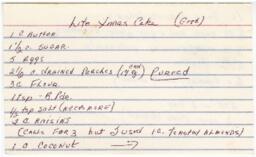 Lite Xmas Cake (Good)
1 C Butter
1 1/2 c. Sugar.
5 Eggs
2 1/2 c. Drained Peaches (19 oz can) Pureed
3 C Flour.
1 tsp - B.Pdr.
1/2 tsp Salt
2 C Raisins
(Calls for 3 but I used 1 C. Almonds)
1 C Coconut →